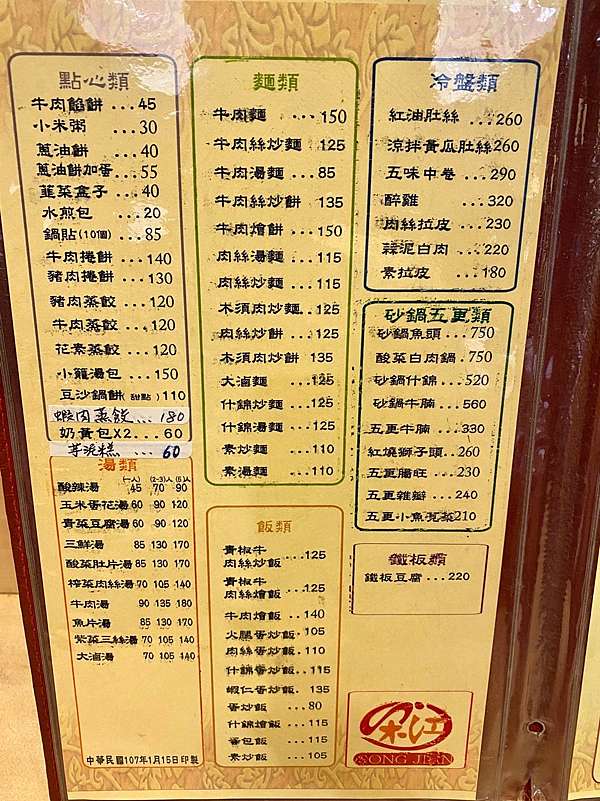 點心類
牛肉餡餅...45
小米粥...30
蔥油餅...40
蔥油餅加蛋...55
韮菜盒子...40
水煎包...20
鍋貼(10個)...85
牛肉捲餅...140
豬肉捲餅...130
豬肉蒸餃...120
牛肉蒸餃...120
花素蒸餃...120
小籠湯包...150
豆沙鍋餅(甜點)110
蝦肉蒸餃...180
奶黃包X2...60
芋泥糕...60
湯類
(一人) (2-3)人 (5)人
酸辣湯 45 70 90
玉米蛋花湯 60 90 120
青菜豆腐湯 60 90 120
三鮮湯 85 130 170
酸菜肚片湯 85 130 170
榨菜肉絲湯 70 105 140
牛肉湯 90 135 180
魚片湯 85 130 170
紫菜三絲湯 70 105 140
大滷湯 70 105 140
中華民國107年1月15日印製
麵類
牛肉麵...150
牛肉絲炒麵 125
牛肉湯麵...85
牛肉絲炒餅 135
牛肉燴餅...150
肉絲湯麵...115
肉絲炒麵...115
木須肉炒麵..125
肉絲炒餅...125
木須肉炒餅 135
大滷麵...125
什錦炒麵...125
什錦湯麵...115
素炒麵...110
素湯麵...110
飯類
青椒牛肉絲炒飯...125
青椒牛肉絲燴飯...125
牛肉燴飯..140
火腿蛋炒飯.105
肉絲蛋炒飯.110
什錦蛋炒飯..115
蝦仁蛋炒飯.135
蛋炒飯...80
什錦燴飯...115
蛋包飯...115
素炒飯...105
冷盤類
紅油肚絲...260
涼拌黃瓜肚絲260
五味中卷...290
醉雞...320
肉絲拉皮...230
蒜泥白肉...220
素拉皮...180
砂鍋五更類
砂鍋魚頭...750
酸菜白肉鍋.750
砂鍋什錦...520
砂鍋牛腩...560
五更牛腩...330
紅燒獅子頭..260
五更腸旺...230
五更雜瓣...240
五更小魚莧菜210
鐵板類
鐵板豆腐...220
宋江
SONG JIAN